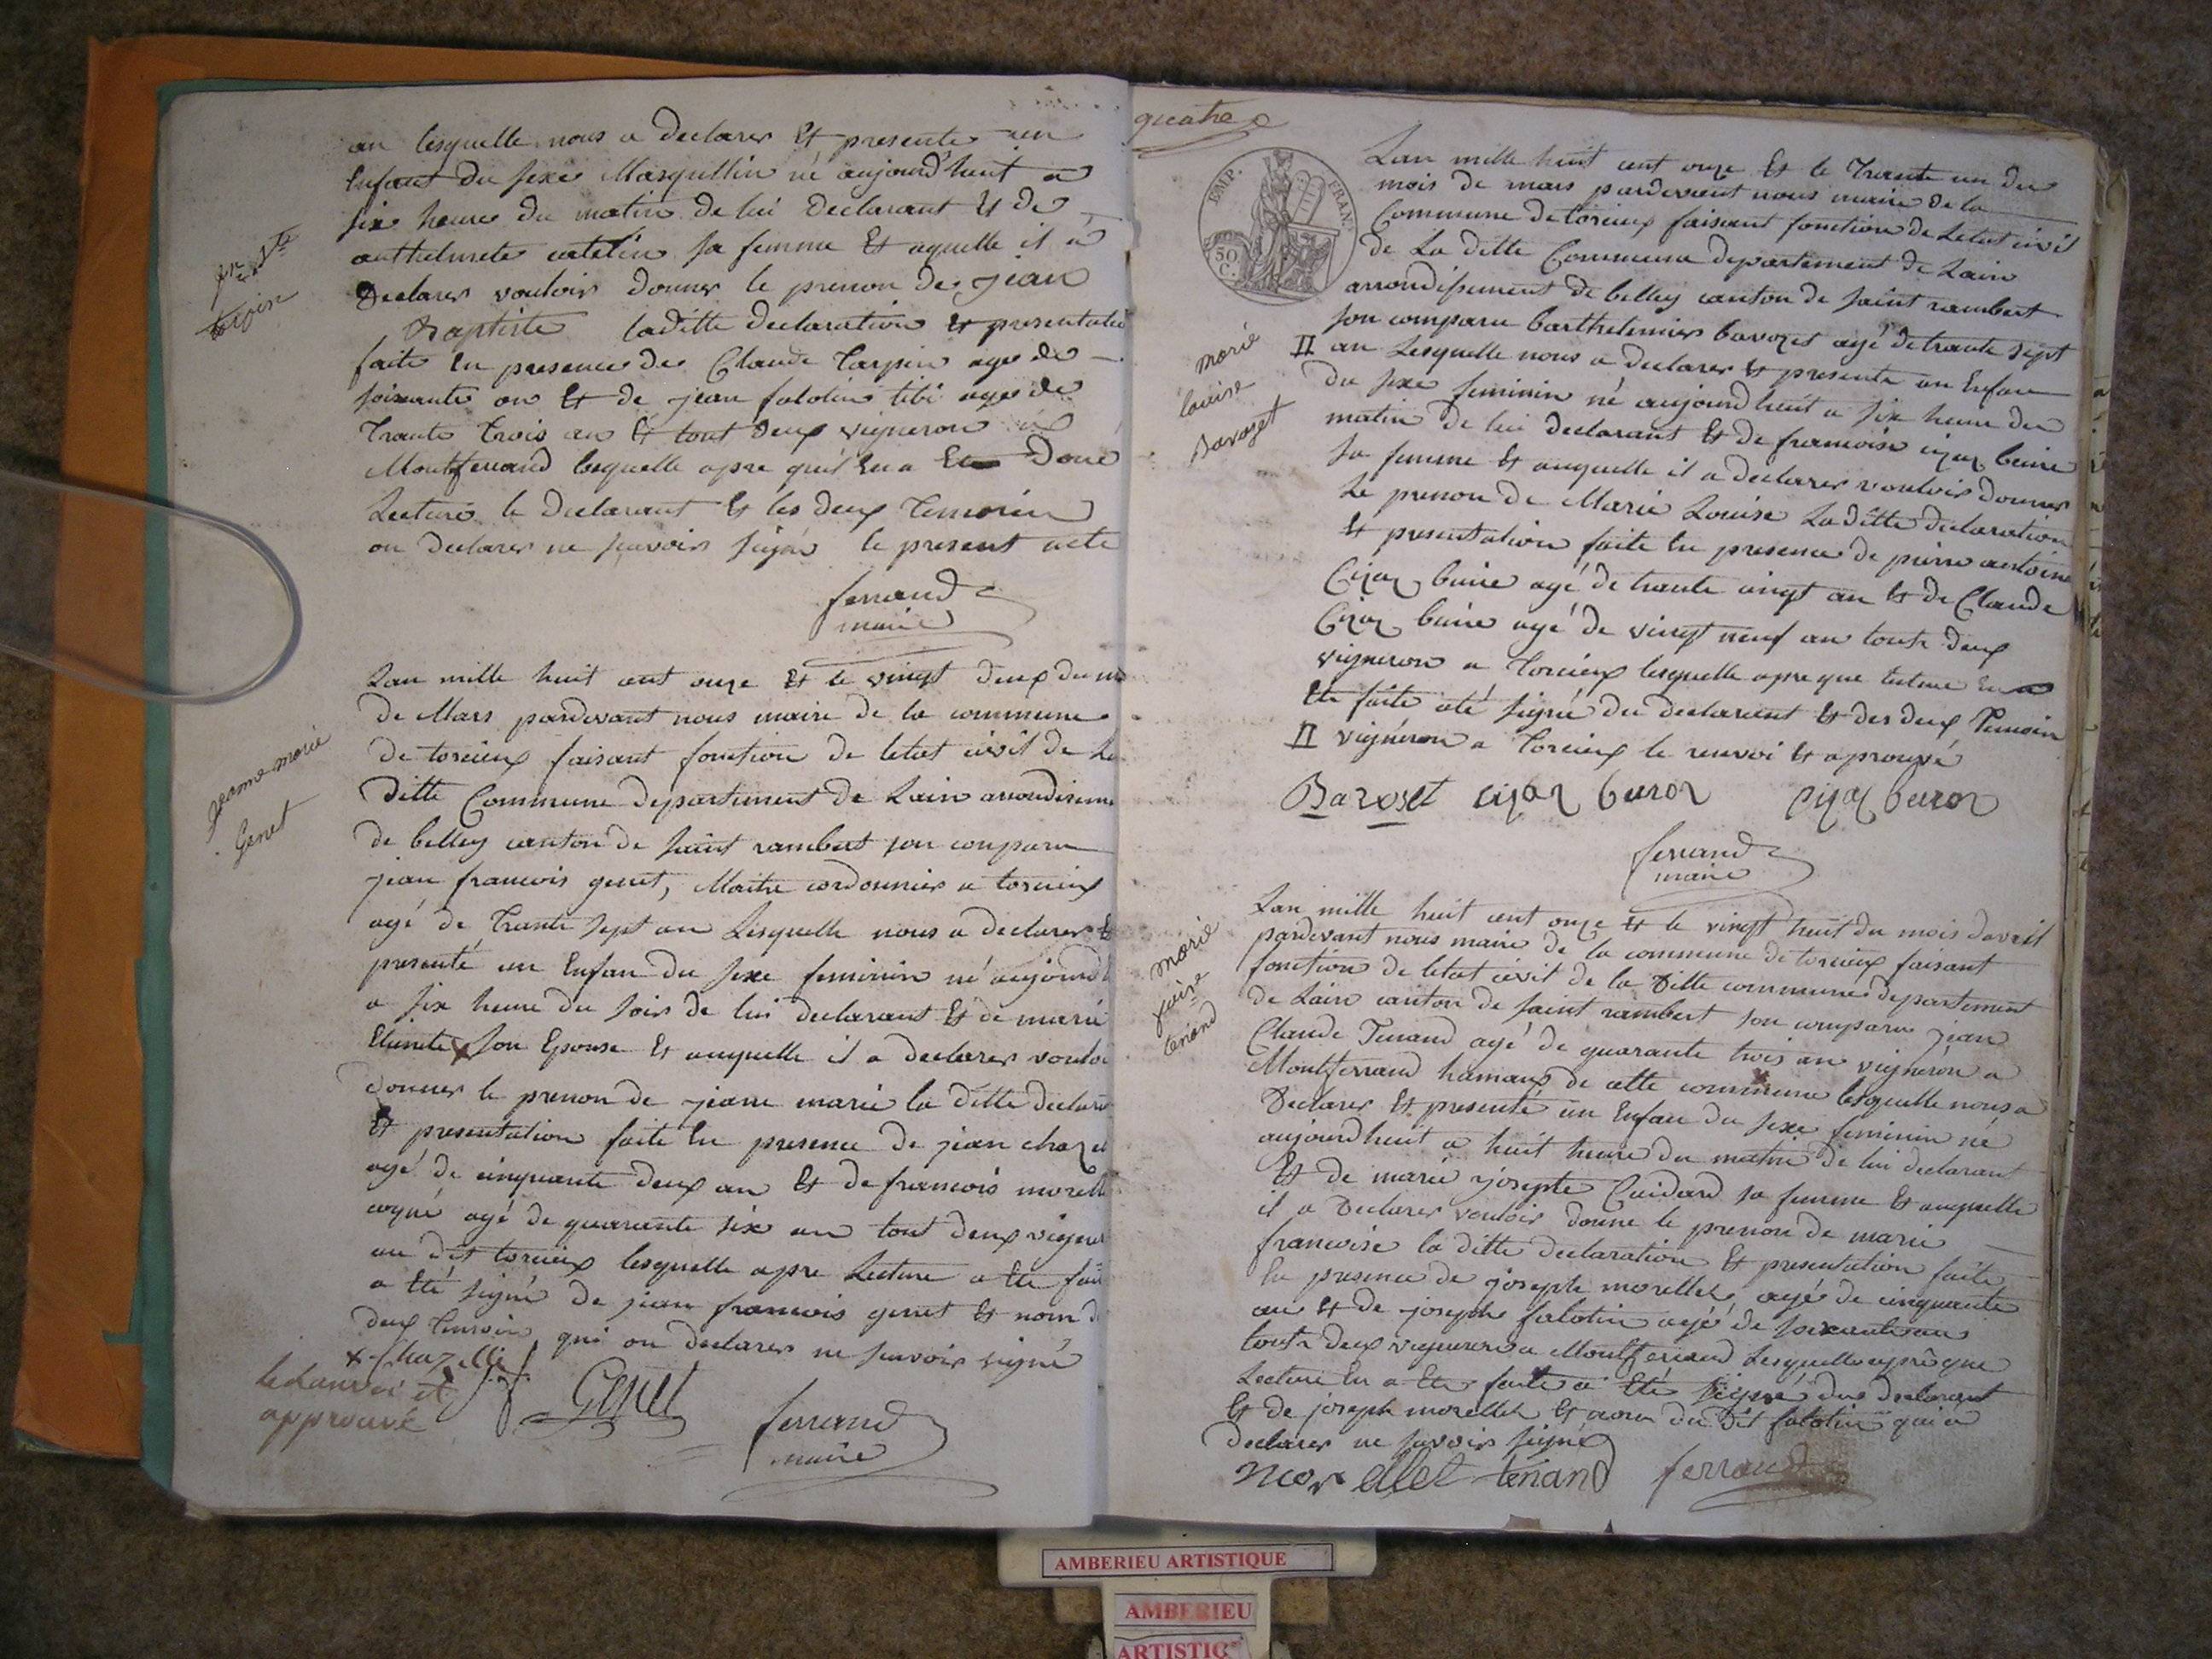 an lesquelle nous a declarer Et presente un
Enfant du sexe Masqullin né aujourd'huit a
six heure du matin de lui declarant Et de
anthelmete sa femme Et aquelle il a
Declarer vouloir donner le prenon de jean
Baptiste laditte declaration Et presentatio
faite En presence de Claude Tarpin age de
soixante an Et de jean falotin tibi age de
Trante Trois an Et tout deux vigneron a
Montferrand lesquelle apre qu'il En a Ete Doné
Lecture le Declarant Et les deux Temoin
on declarer ne savoir signé le present acte
ferrand
maire
jn Bte
tarpin
Lan mille huit cent onze Et le vingt deux du m
de Mars pardevant nous maire de la commune
de torcieux faisant fonction de letat civil de La
ditte Commune departement de Lain arrondiseme
de belley canton de saint rambert son comparu
jean francois genet, Maitre cordonnier a torcieux
agé de Trante sept an Lesquelle nous a declarer Et
presenté un Enfan du sexe feminin né aujourd
a six heure du soir de lui declarant Et de marie
son Epouse Et auquelle il a declarer vouloi
donner le prenon de jeane marie la ditte declara
Et presentation faite En presence de jean chazel
agé de cinquante deux an Et de francois morelle
agé de quarante six an tout deux vigner
au dit torcieux lesquelle apre Lecture a Ete fait
a Eté signé de jean francois genet Et nom d
deux temoin qui on declarer ne savoir signé
jeanne marie
Genet
x chazelle
le Ranvoi et
approuvé
j. f. Genet
ferrand
maire
quatre
EMP. FRAN.
50 C.
Lan mille huit cent onze Et le Trante un du
mois de mars pardevant nous maire de la
Commune de torcieux faisant fonction de Letat civil
de La ditte Commune departement de Lain
arrondisement de belley canton de saint rambert
son comparu barthelemier bavozet agé de trante sept
II an Lesquelle nous a declarer Et presente un Enfan
du sexe feminin né aujourd huit a six heure du
matin de lui declarant Et de francoise
sa femme Et auquelle il a declarer vouloir donner
Le prenon de Marie Louise La ditte declaration
Et presentation faite En presence de pierre antoine
agé de trante vingt an Et de Claude
agé de vingt neuf an toute deux
vigneron a Torcieux lesquelle apre que lecture En a
Ete faite a été signé du declarant Et des deux Temoin
II vigneron a torcieux le renvoi Et aprouvé
marie
louise
Bavozet
Bavozet cizoz buroz cizoz buroz
ferrand
maire
Lan mille huit cent onze Et le vingt huit du mois davril
pardevant nous maire de la commune de torcieux faisant
fonction de letat civil de la Ditte commune departement
de Lain canton de saint rambert son comparu jean
Claude Tenand agé de quarante trois an vignéron a
Montferrand hamaux de cette commune lesquelle nous a
Declarer Et presenté un Enfan du sexe feminin né
aujourdhuit a huit heure du matin de lui declarant
Et de marie josepte Cuidard sa femme Et auquelle
il a Declarer vouloir donne le prenon de marie
francoise la ditte declaration Et presentation faite
En presence de joseph morellet agé de cinquante
an Et de joseph falotin agé de soixante an
toute deux vigneron a Montferrand Lesquelle aprè que
Lecture En a Ete faite a Eté signé du declarant
Et de joseph morellet Et nom du dit falotin qui a
declarer ne savoir signé
marie
fsoise
tenand
morellet tenand ferrand
AMBERIEU ARTISTIQUE
AMBERIEU
ARTISTIQ